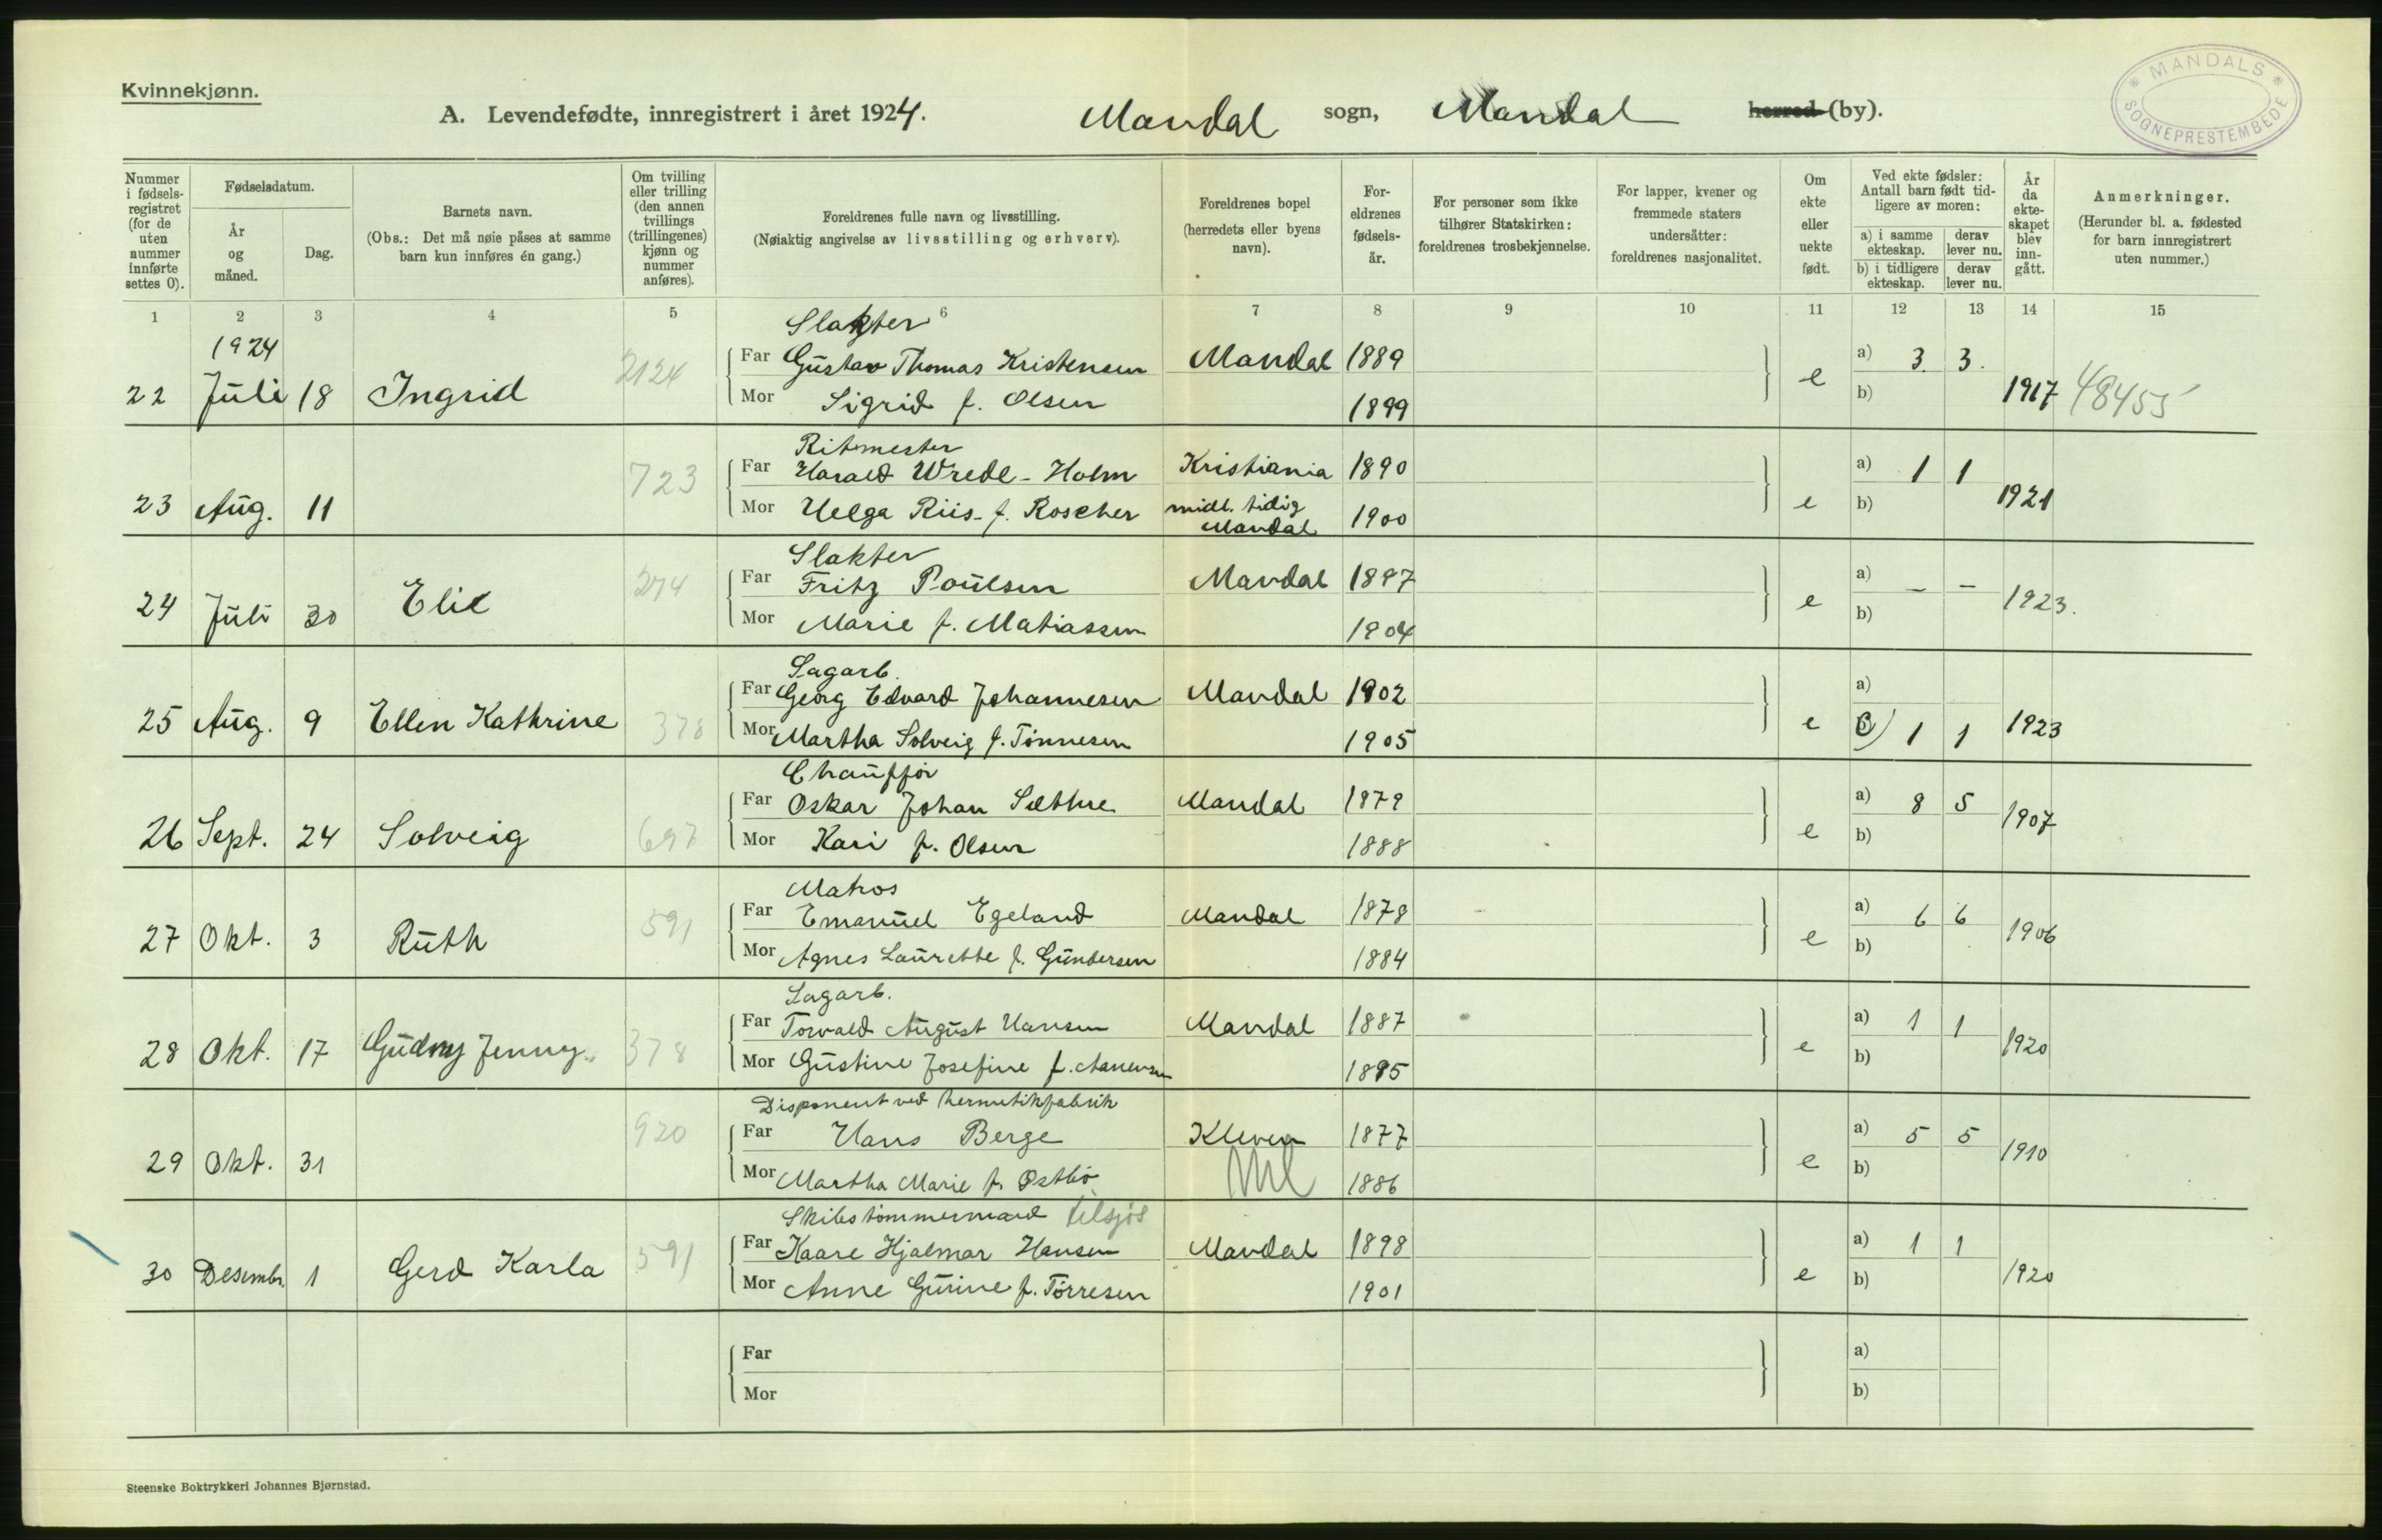 Kvinnekjønn.
A. Levendefødte, innregistrert i året 1924. Mandal sogn, Mandal herred (by).
* MANDALS *
SOGNEPRESTEMBEDE
Nummer i fødselsregistret (for de uten nummer innførte settes 0).
Fødselsdatum.
År og måned.
Dag.
Barnets navn.
(Obs.: Det må nøie påses at samme barn kun innføres én gang.)
Om tvilling eller trilling (den annen tvillings (trillingenes) kjønn og nummer anføres).
Foreldrenes fulle navn og livsstilling.
(Nøiaktig angivelse av livsstilling og erhverv).
Foreldrenes bopel (herredets eller byens navn).
Foreldrenes fødselsår.
For personer som ikke tilhører Statskirken: foreldrenes trosbekjennelse.
For lapper, kvener og fremmede staters undersåtter: foreldrenes nasjonalitet.
Om ekte eller uekte født.
Ved ekte fødsler: Antall barn født tidligere av moren:
a) i samme ekteskap. derav lever nu.
b) i tidligere ekteskap. derav lever nu.
År da ekteskapet blev inngått.
Anmerkninger.
(Herunder bl. a. fødested for barn innregistrert uten nummer.)
1 2 3 4 5 6 7 8 9 10 11 12 13 14 15
1924 Slakter
Far Gustav Thomas Kristensen Mandal 1889 a) 3 3.
22 Juli 18 Ingrid 2124 Mor Sigrid f. Olsen 1899 e b) 1917 48455
Ritmester
Far Harald Wrede-Holm Kristiania 1890 a) 1 1
23 Aug. 11 723 Mor Helga Riis f. Roscher midl. tidig Mandal 1900 e b) 1921
Slakter
Far Fritz Poulsen Mandal 1897 a) – –
24 Juli 30 Elie 274 Mor Marie f. Matiassen 1904 e b) 1923.
Sagarb.
Far Georg Edvard Johannesen Mandal 1902 a)
25 Aug. 9 Ellen Kathrine 378 Mor Martha Solveig f. Tönnesen 1905 e b) 1 1 1923
Chaufför
Far Oskar Johan Sæthre Mandal 1879 a) 8 5
26 Sept. 24 Solveig 697 Mor Kari f. Olsen 1888 e b) 1907
Matros
Far Emanuel Egeland Mandal 1878 a) 6 6
27 Okt. 3 Ruth 591 Mor Agnes Laurette f. Gundersen 1884 e b) 1906
Sagarb.
Far Torvald August Hansen Mandal 1887 a) 1 1
28 Okt. 17 Gudny Jenny 378 Mor Gustine Josefine f. Aanensen 1895 e b) 1920
Disponent ved hermetikfabrik
Far Hans Berge Kleven 1877 a) 5 5
29 Okt. 31 920 Mor Martha Marie f. Östbö 1886 e b) 1910
Skibstömmermand tilsjös
Far Kaare Hjalmar Hansen Mandal 1898 a) 1 1
30 Desembr. 1 Gerd Karla 591 Mor Anne Gurine f. Törresen 1901 e b) 1920
Far a)
Mor b)
Steenske Boktrykkeri Johannes Bjørnstad.